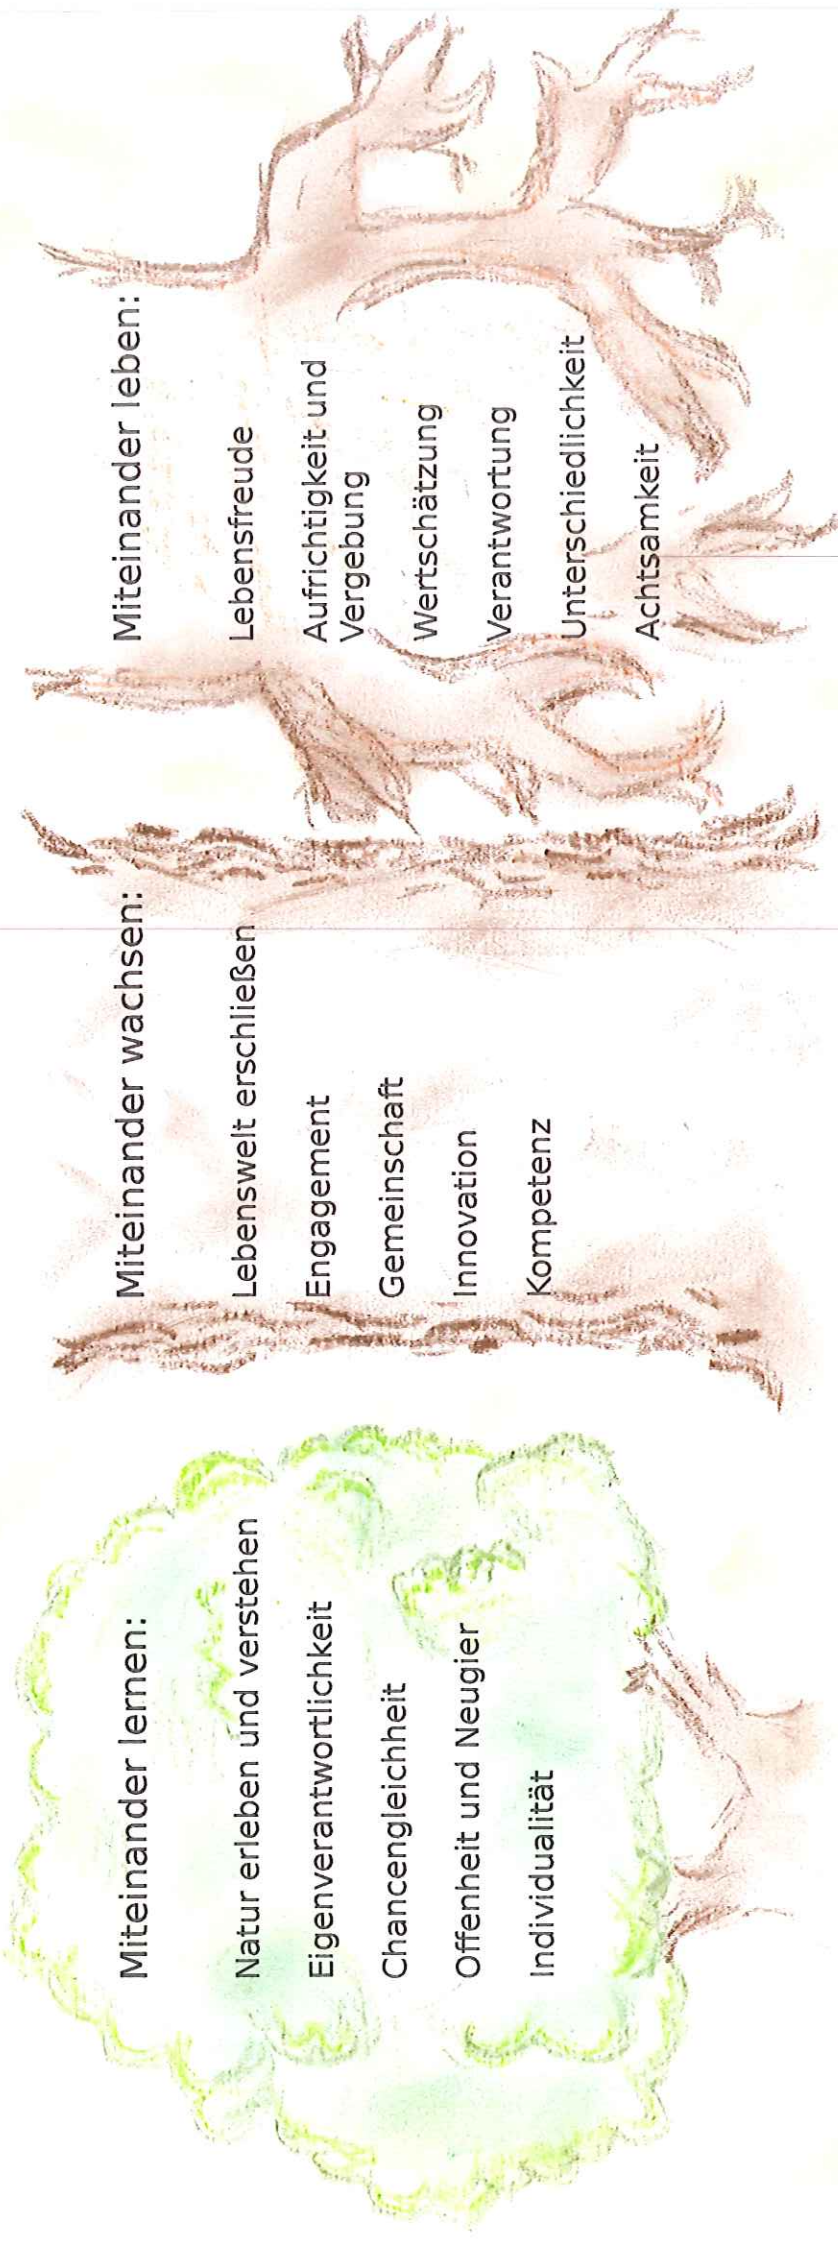 Miteinander lernen:
Natur erleben und verstehen
Eigenverantwortlichkeit
Chancengleichheit
Offenheit und Neugier
Individualität
Miteinander wachsen:
Lebenswelt erschließen
Engagement
Gemeinschaft
Innovation
Kompetenz
Miteinander leben:
Lebensfreude
Aufrichtigkeit und
Vergebung
Wertschätzung
Verantwortung
Unterschiedlichkeit
Achtsamkeit